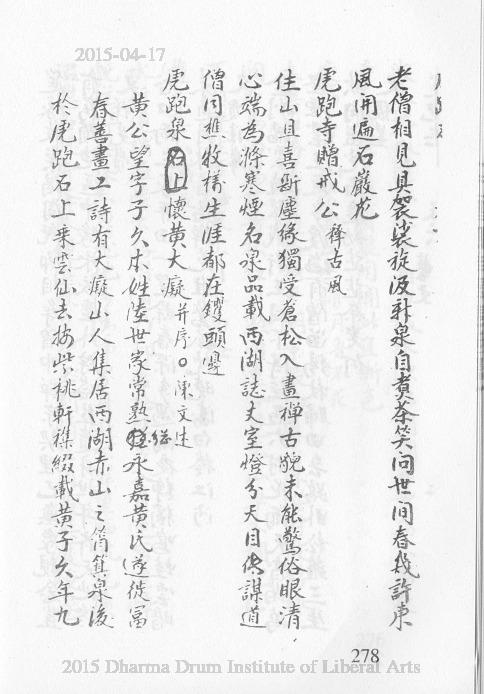 2015-04-17
老僧相見具袈裟旋汲新泉自煮茶笑問世間春幾許東
風開遍石巖花
虎跑寺贈戒公 釋古風
住山且喜斷塵緣獨受蒼松入畫禪古貌未能驚俗眼清
心端為滌寒煙名泉品載西湖誌丈室燈分天目傳謀道
僧同樵牧樣生涯都在钁頭邊
虎跑泉石上懷黃大癡 并序 陳文述
黃公望字子久本姓陸世家常熟繼永嘉黃氏遂徙富
春善畫工詩有大癡山人集居西湖赤山之筲箕泉後
於虎跑石上乘雲仙去按紫桃軒襍綴載黃子久年九
278
2015 Dharma Drum Institute of Liberal Arts